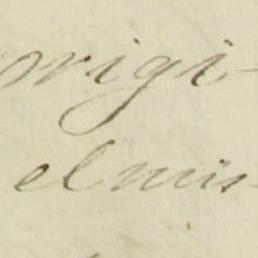 origi-
elmis